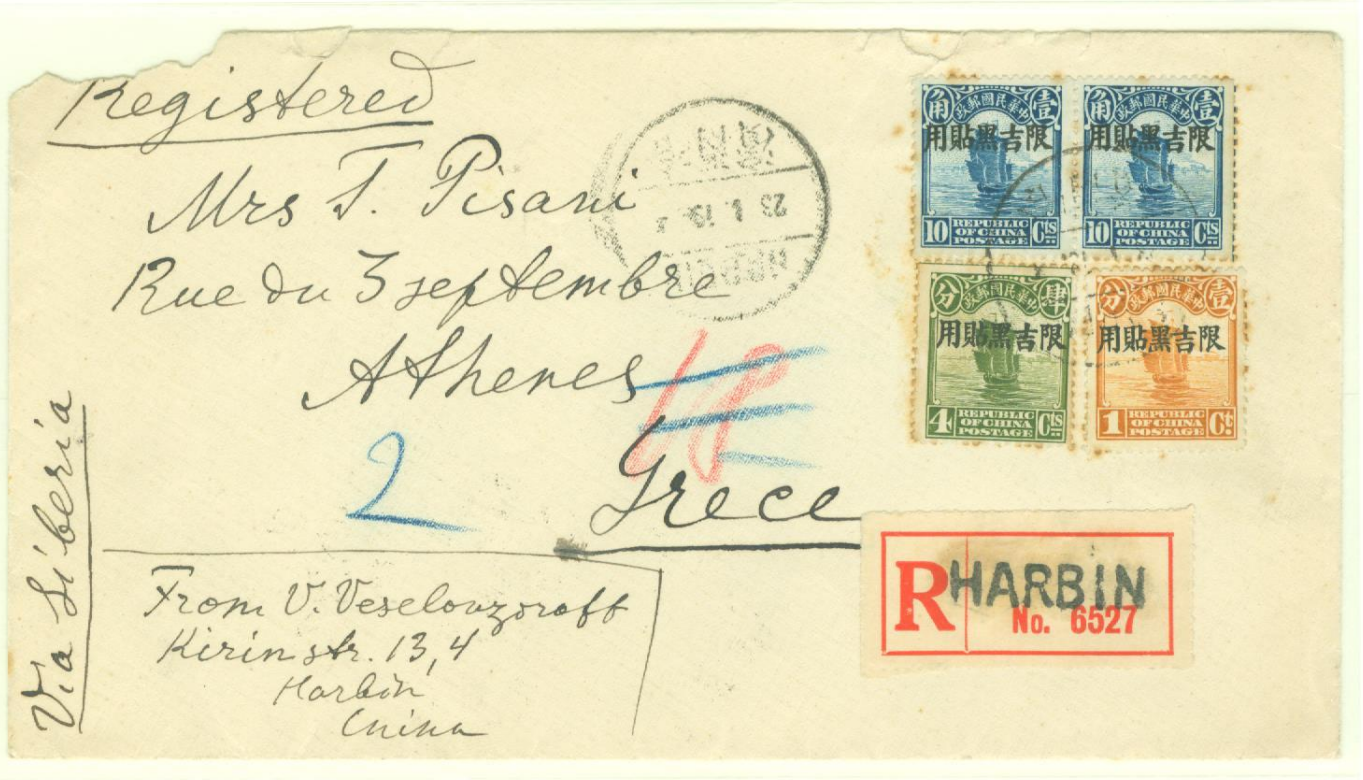 Registered
Mrs T. Pisani
Rue du 3 septembre
Athenes
Grece
Via Siberia
2
18
From V.
Kirin str. 13, 4
Harbin
China
HARBIN
角 中華民國郵政 壹
限吉黑貼用
10 REPUBLIC OF CHINA POSTAGE Cts
角 中華民國郵政 壹
限吉黑貼用
10 REPUBLIC OF CHINA POSTAGE Cts
分 中華民國郵政 肆
限吉黑貼用
4 REPUBLIC OF CHINA POSTAGE Cts
分 中華民國郵政 壹
限吉黑貼用
1 REPUBLIC OF CHINA POSTAGE Ct
R HARBIN
No. 6527